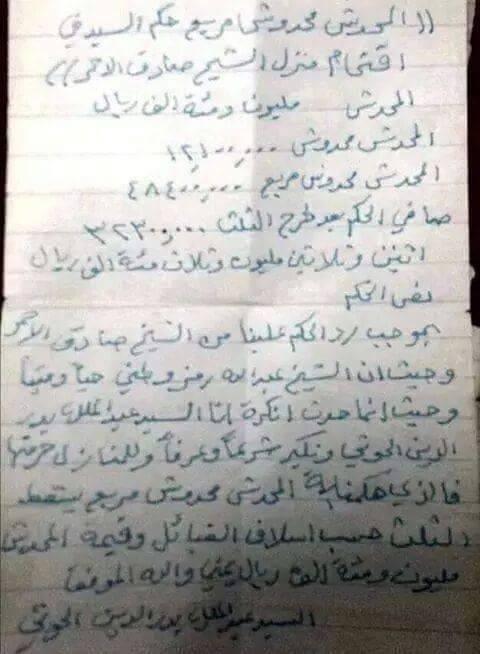 ((المحدش محدوش مربع حكم السيد في
اقتحام منزل الشيخ صادق الاحمر))
المحدش مليون ومئة الف ريال
المحدش محدوش ١٢١٠٠,٠٠٠
المحدش محدوش مربع ٤٨٤٠٠,٠٠٠
صافي الحكم بعد طرح الثلث ٣٢٣٠٠,٠٠٠
اثنين وثلاثين مليون وثلاث مئة الف ريال
نص الحكم
بموجب رد الحكم علينا من الشيخ صادق الاحمر
وحيث ان الشيخ عبدالله رمز وطني حياً وميتاً
وحيث انما حدث انكرة انا السيد عبدالملك بدر
الدين الحوثي ونكير شرعاً وعرفاً وللمنازل حرمتها
فالذي حكمنا به المحدش محدوش مربع يسقط
الثلث حسب اسلاف القبائل وقيمة المحدش
مليون ومئة الف ريال يمني والله الموفق
السيد عبدالملك بدر الدين الحوثي